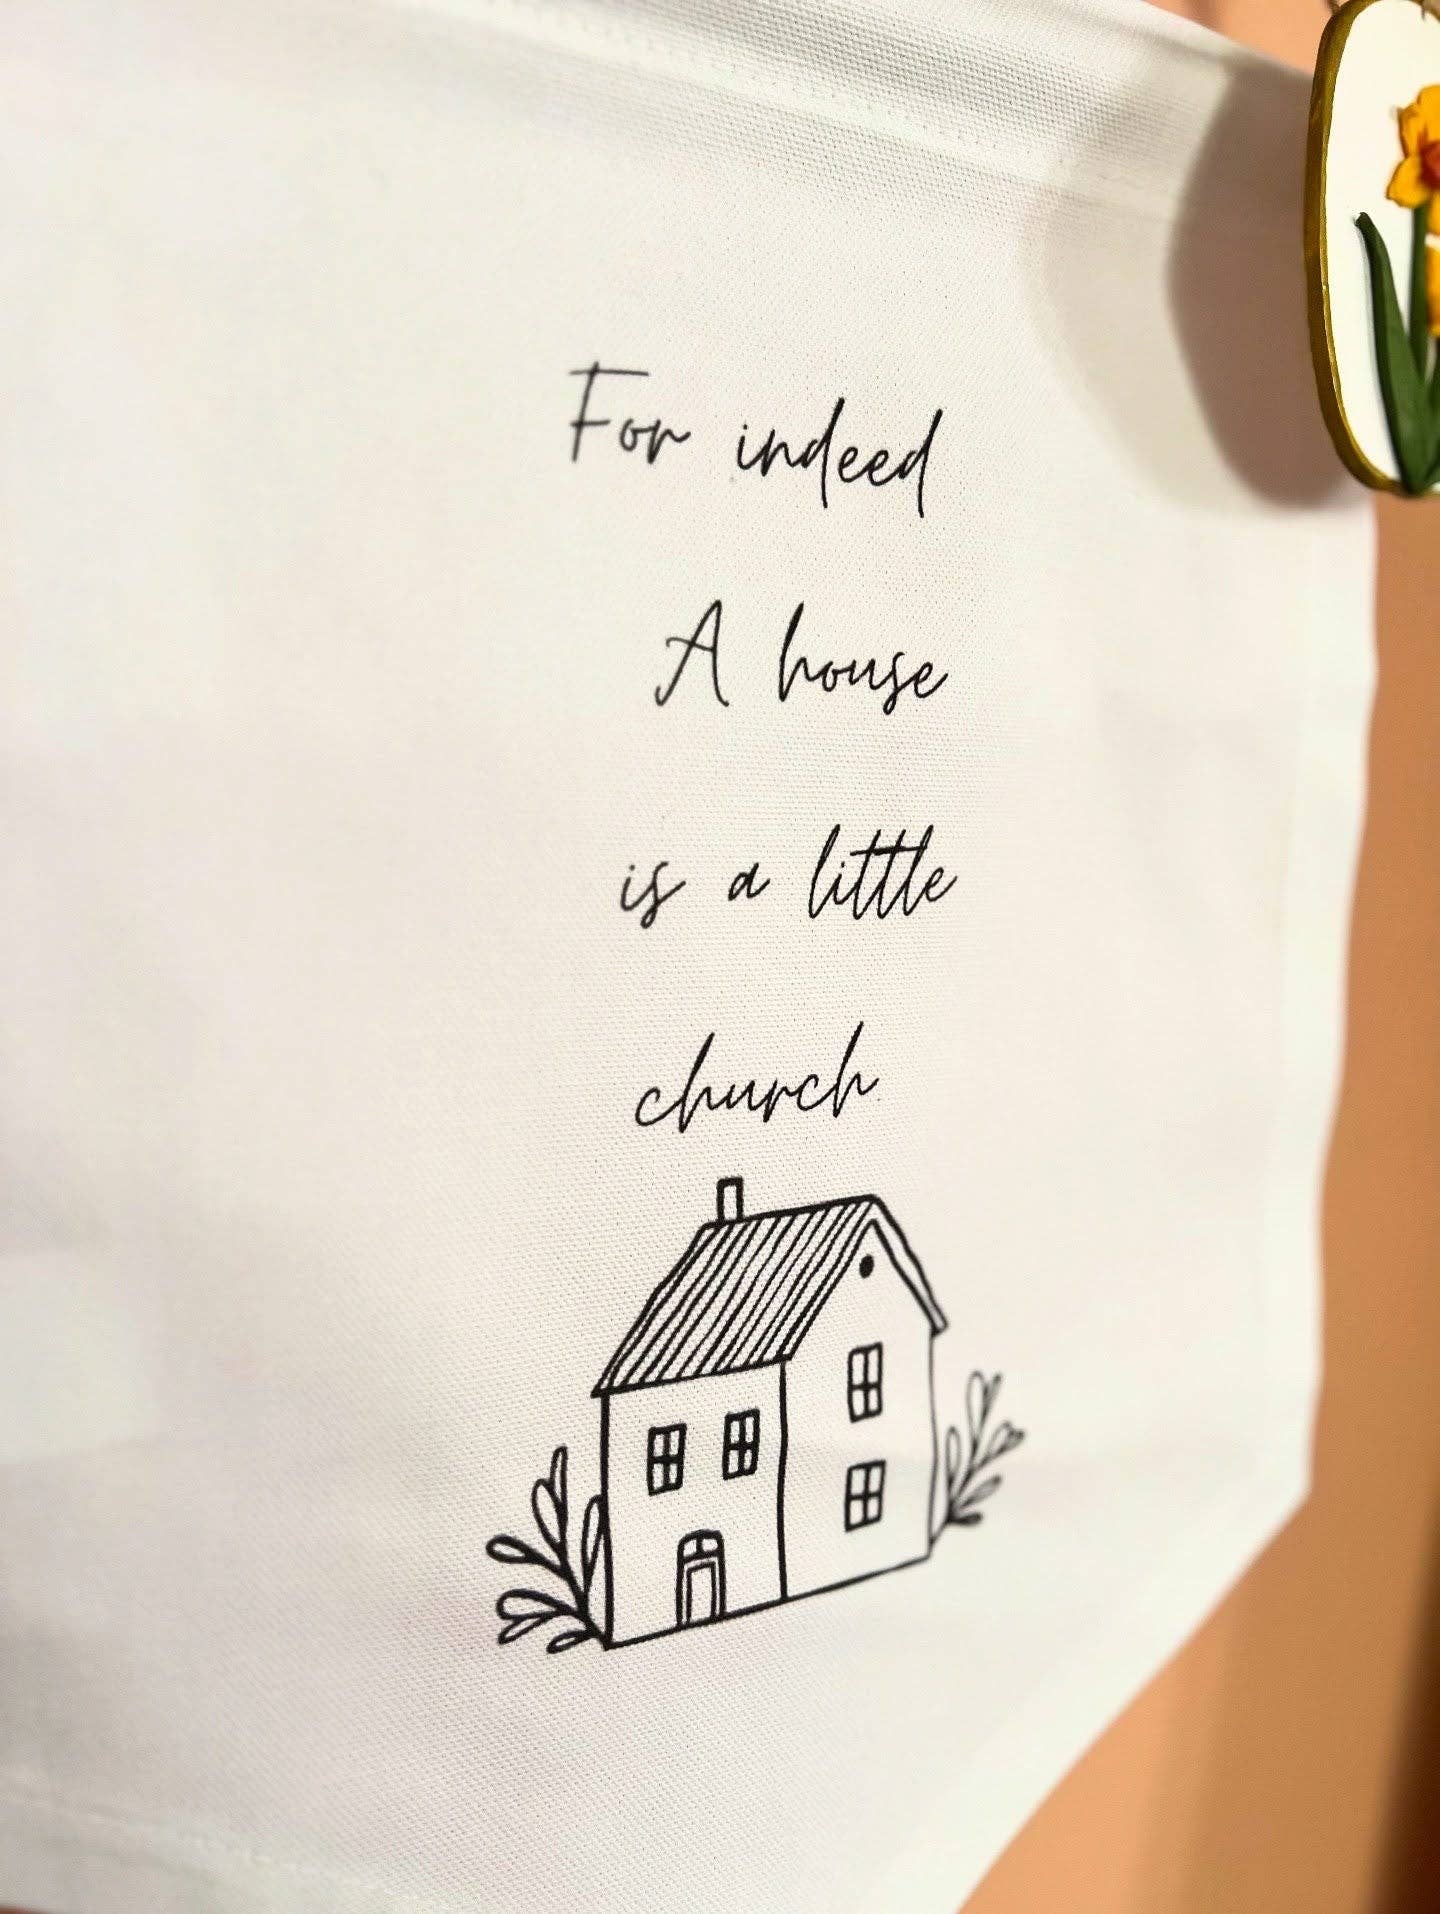 For indeed
A house
is a little
church